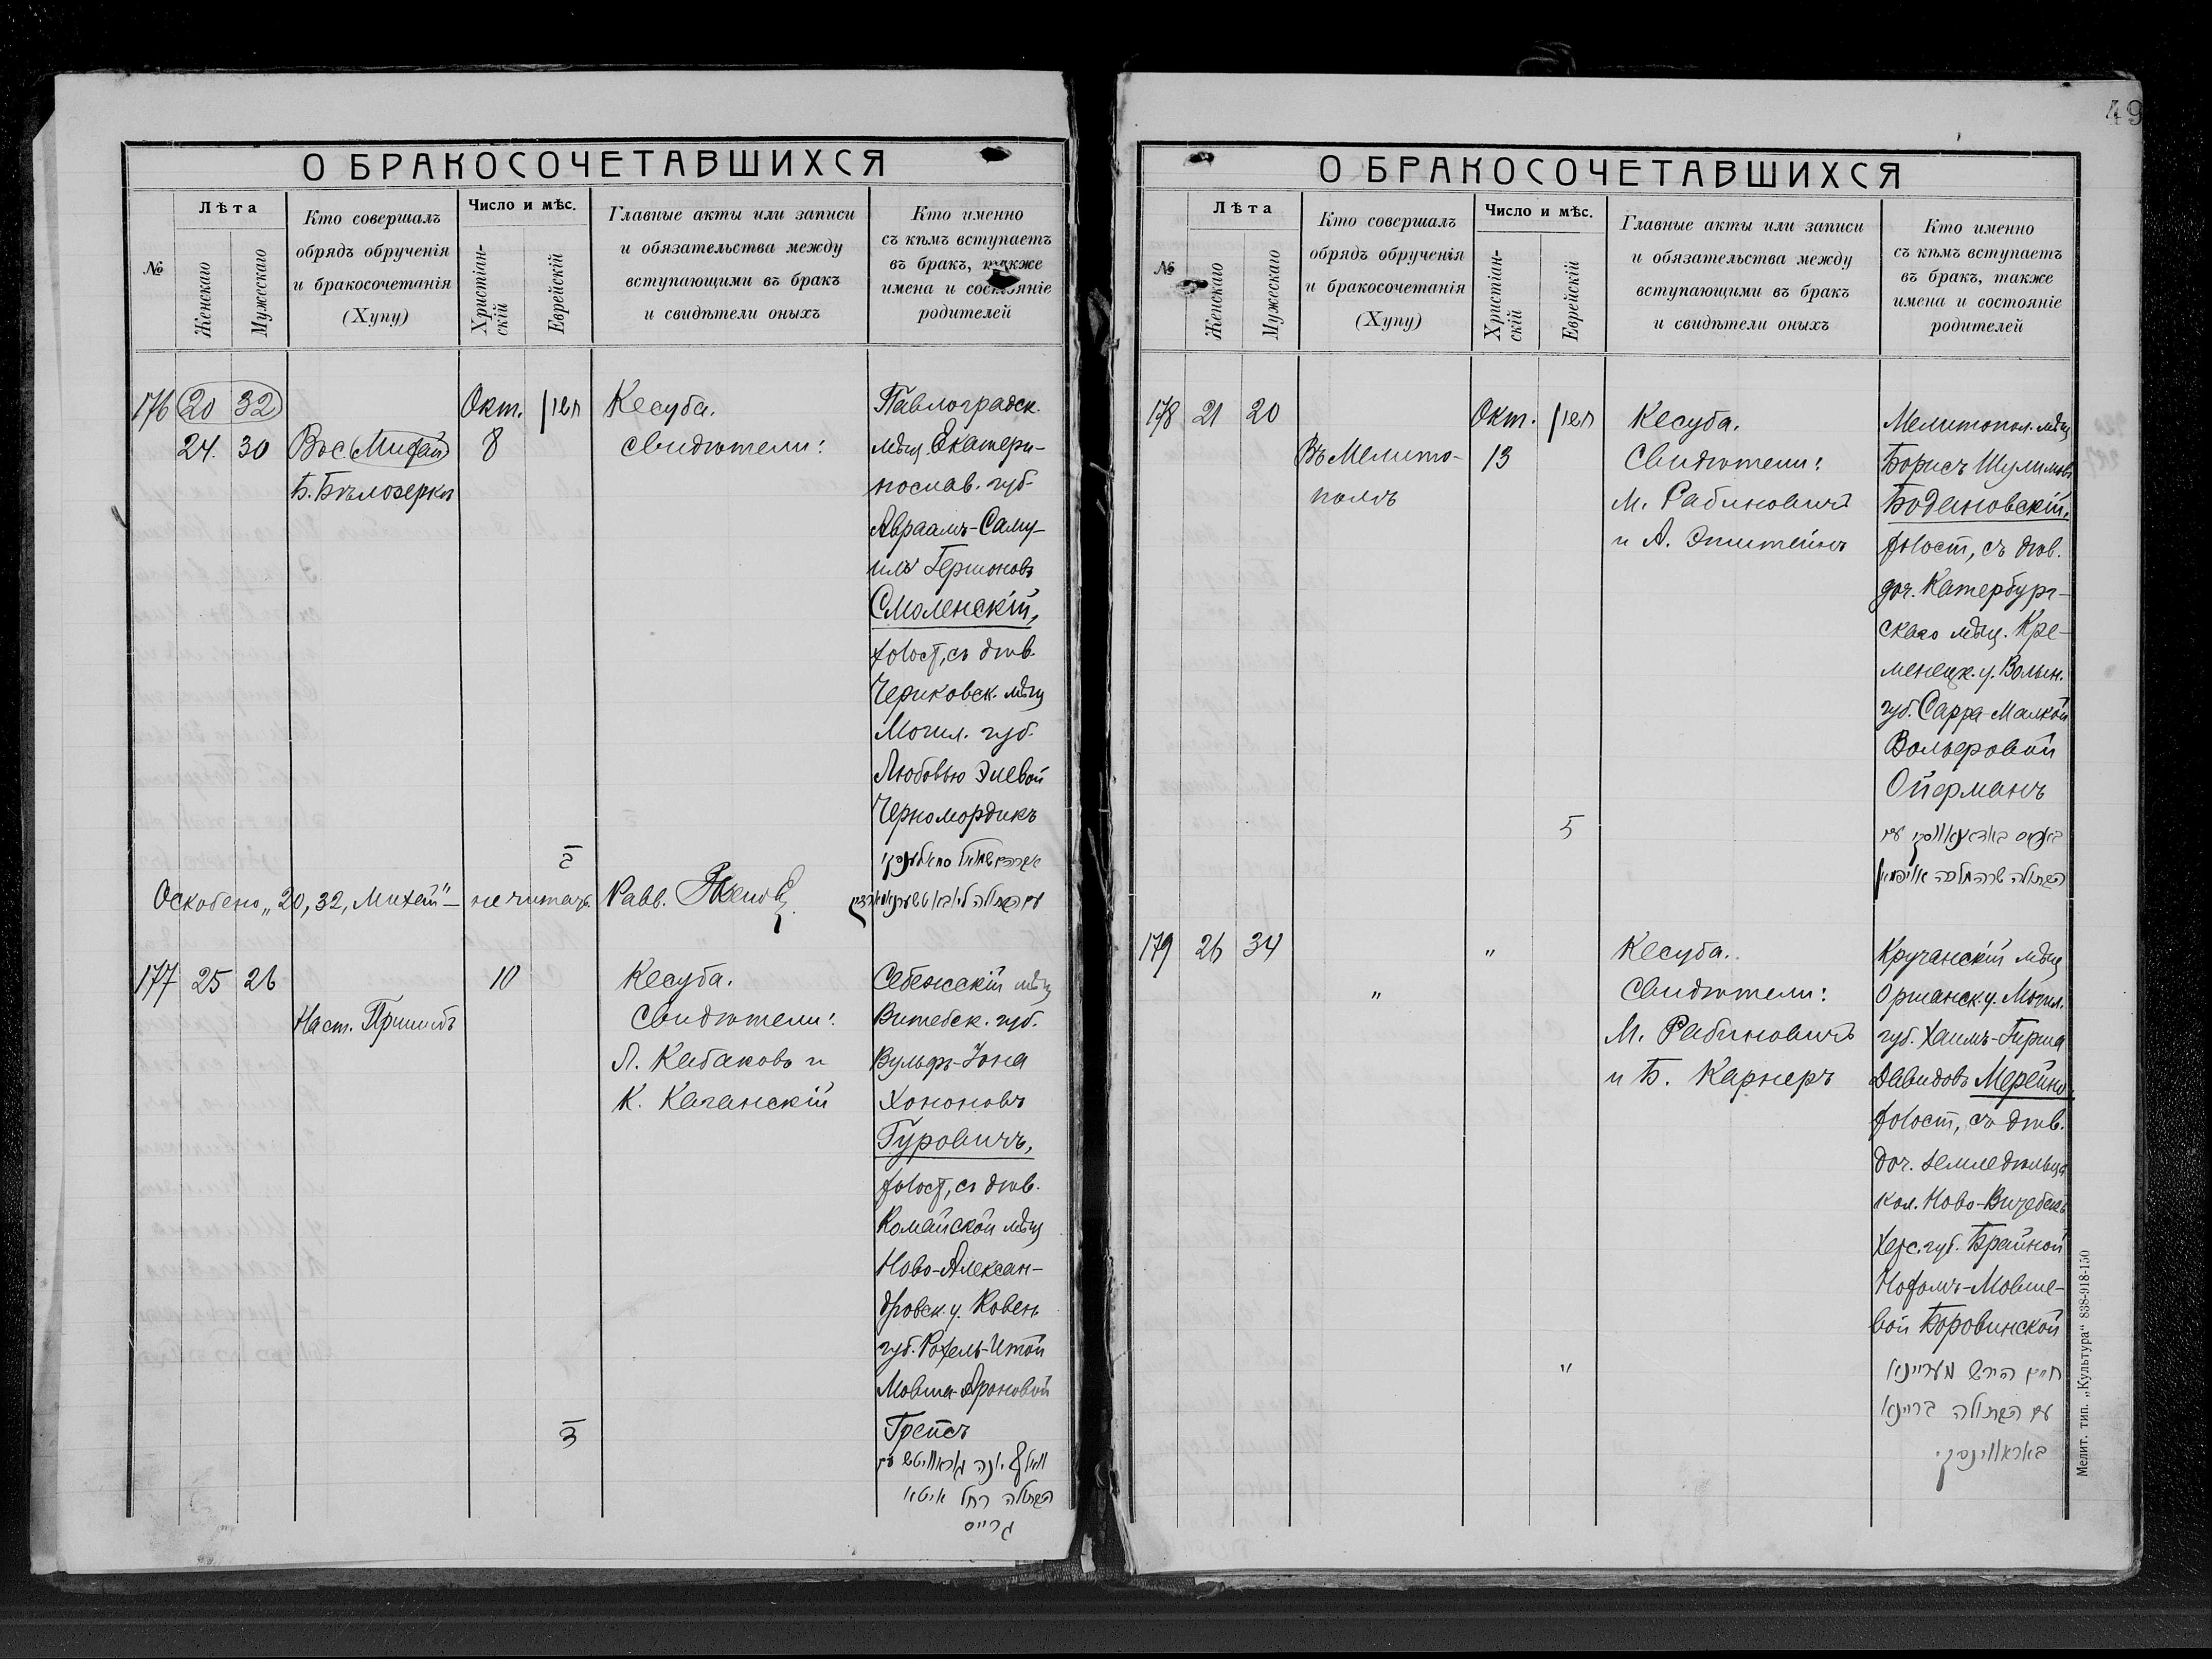 49
О БРАКОСОЧЕТАВШИХСЯ
№
Лѣта
Женскаго
Мужескаго
Кто совершалъ
обрядъ обрученія
и бракосочетанія
(Хупу)
Число и мѣс.
Христіан-
скій
Еврейскій
Главные акты или записи
и обязательства между
вступающими въ бракъ
и свидѣтели оныхъ
Кто именно
съ кѣмъ вступаетъ
въ бракъ, также
имена и состояніе
родителей
176 20 32
24. 30
Вос. Михай
Б. Бѣлозерка
Окт.
8
חשון
ב
Кесуба.
Свидѣтели:
Павлоградск.
мѣщ. Екатери-
нослав. губ.
Авраамъ-Саму-
илъ Гершоновъ
Смоленскій,
холост, съ дѣв.
Чериковск. мѣщ
Могил. губ.
Любовью Элевой
Черномордикъ
Оскоблено „20, 32, Михай" — не читать.
Равв.
177 25 26
Наст. Пришибъ
10
ד
Кесуба.
Свидѣтели:
Л. Кабаковъ и
К. Каганскій
Себежскій мѣщ
Витебск. губ.
Вульфъ-Іона
Хононовъ
Гуровичъ,
холост, съ дѣв.
Комайской мѣщ
Ново-Алексан-
дровск. у. Ковен.
губ. Рохель-Итой
Мовша-Ароновой
Грейсъ
וואלף יונה גוראוויטש עם
הבתולה רחל איטא
גרייס
О БРАКОСОЧЕТАВШИХСЯ
№
Лѣта
Женскаго
Мужескаго
Кто совершалъ
обрядъ обрученія
и бракосочетанія
(Хупу)
Число и мѣс.
Христіан-
скій
Еврейскій
Главные акты или записи
и обязательства между
вступающими въ бракъ
и свидѣтели оныхъ
Кто именно
съ кѣмъ вступаетъ
въ бракъ, также
имена и состояніе
родителей
178 21 20
Въ Мелито-
полѣ
Окт.
13
חשון
ז
Кесуба.
Свидѣтели:
М. Рабиновичъ
и А. Эпштейнъ
Мелитопол. мѣщ
Борисъ Шулимовъ
Бодановскій,
холост, съ дѣв.
доч. Катербург-
скаго мѣщ. Кре-
менецк. у. Волын.
губ. Сарра-Малкой
Вольфовой
Ойерманъ
הבתולה שרה מלכה אויערמאן
179 26 34
"
"
"
Кесуба.
Свидѣтели:
М. Рабиновичъ
и Б. Карнеръ
Кручанскій мѣщ
Оршанск. у. Могил.
губ. Хаимъ-Гирша
Давидовъ Мерейно,
холост, съ дѣв.
доч. земледѣльца
кол. Ново-Витебскъ
Херс. губ. Брайной
Нохомъ-Мовше-
вой Боровинской
חיים הירש מעריינא
עם הבתולה בריינא
באראווינסקי
Мелит. тип. „Культура" 838-918-150